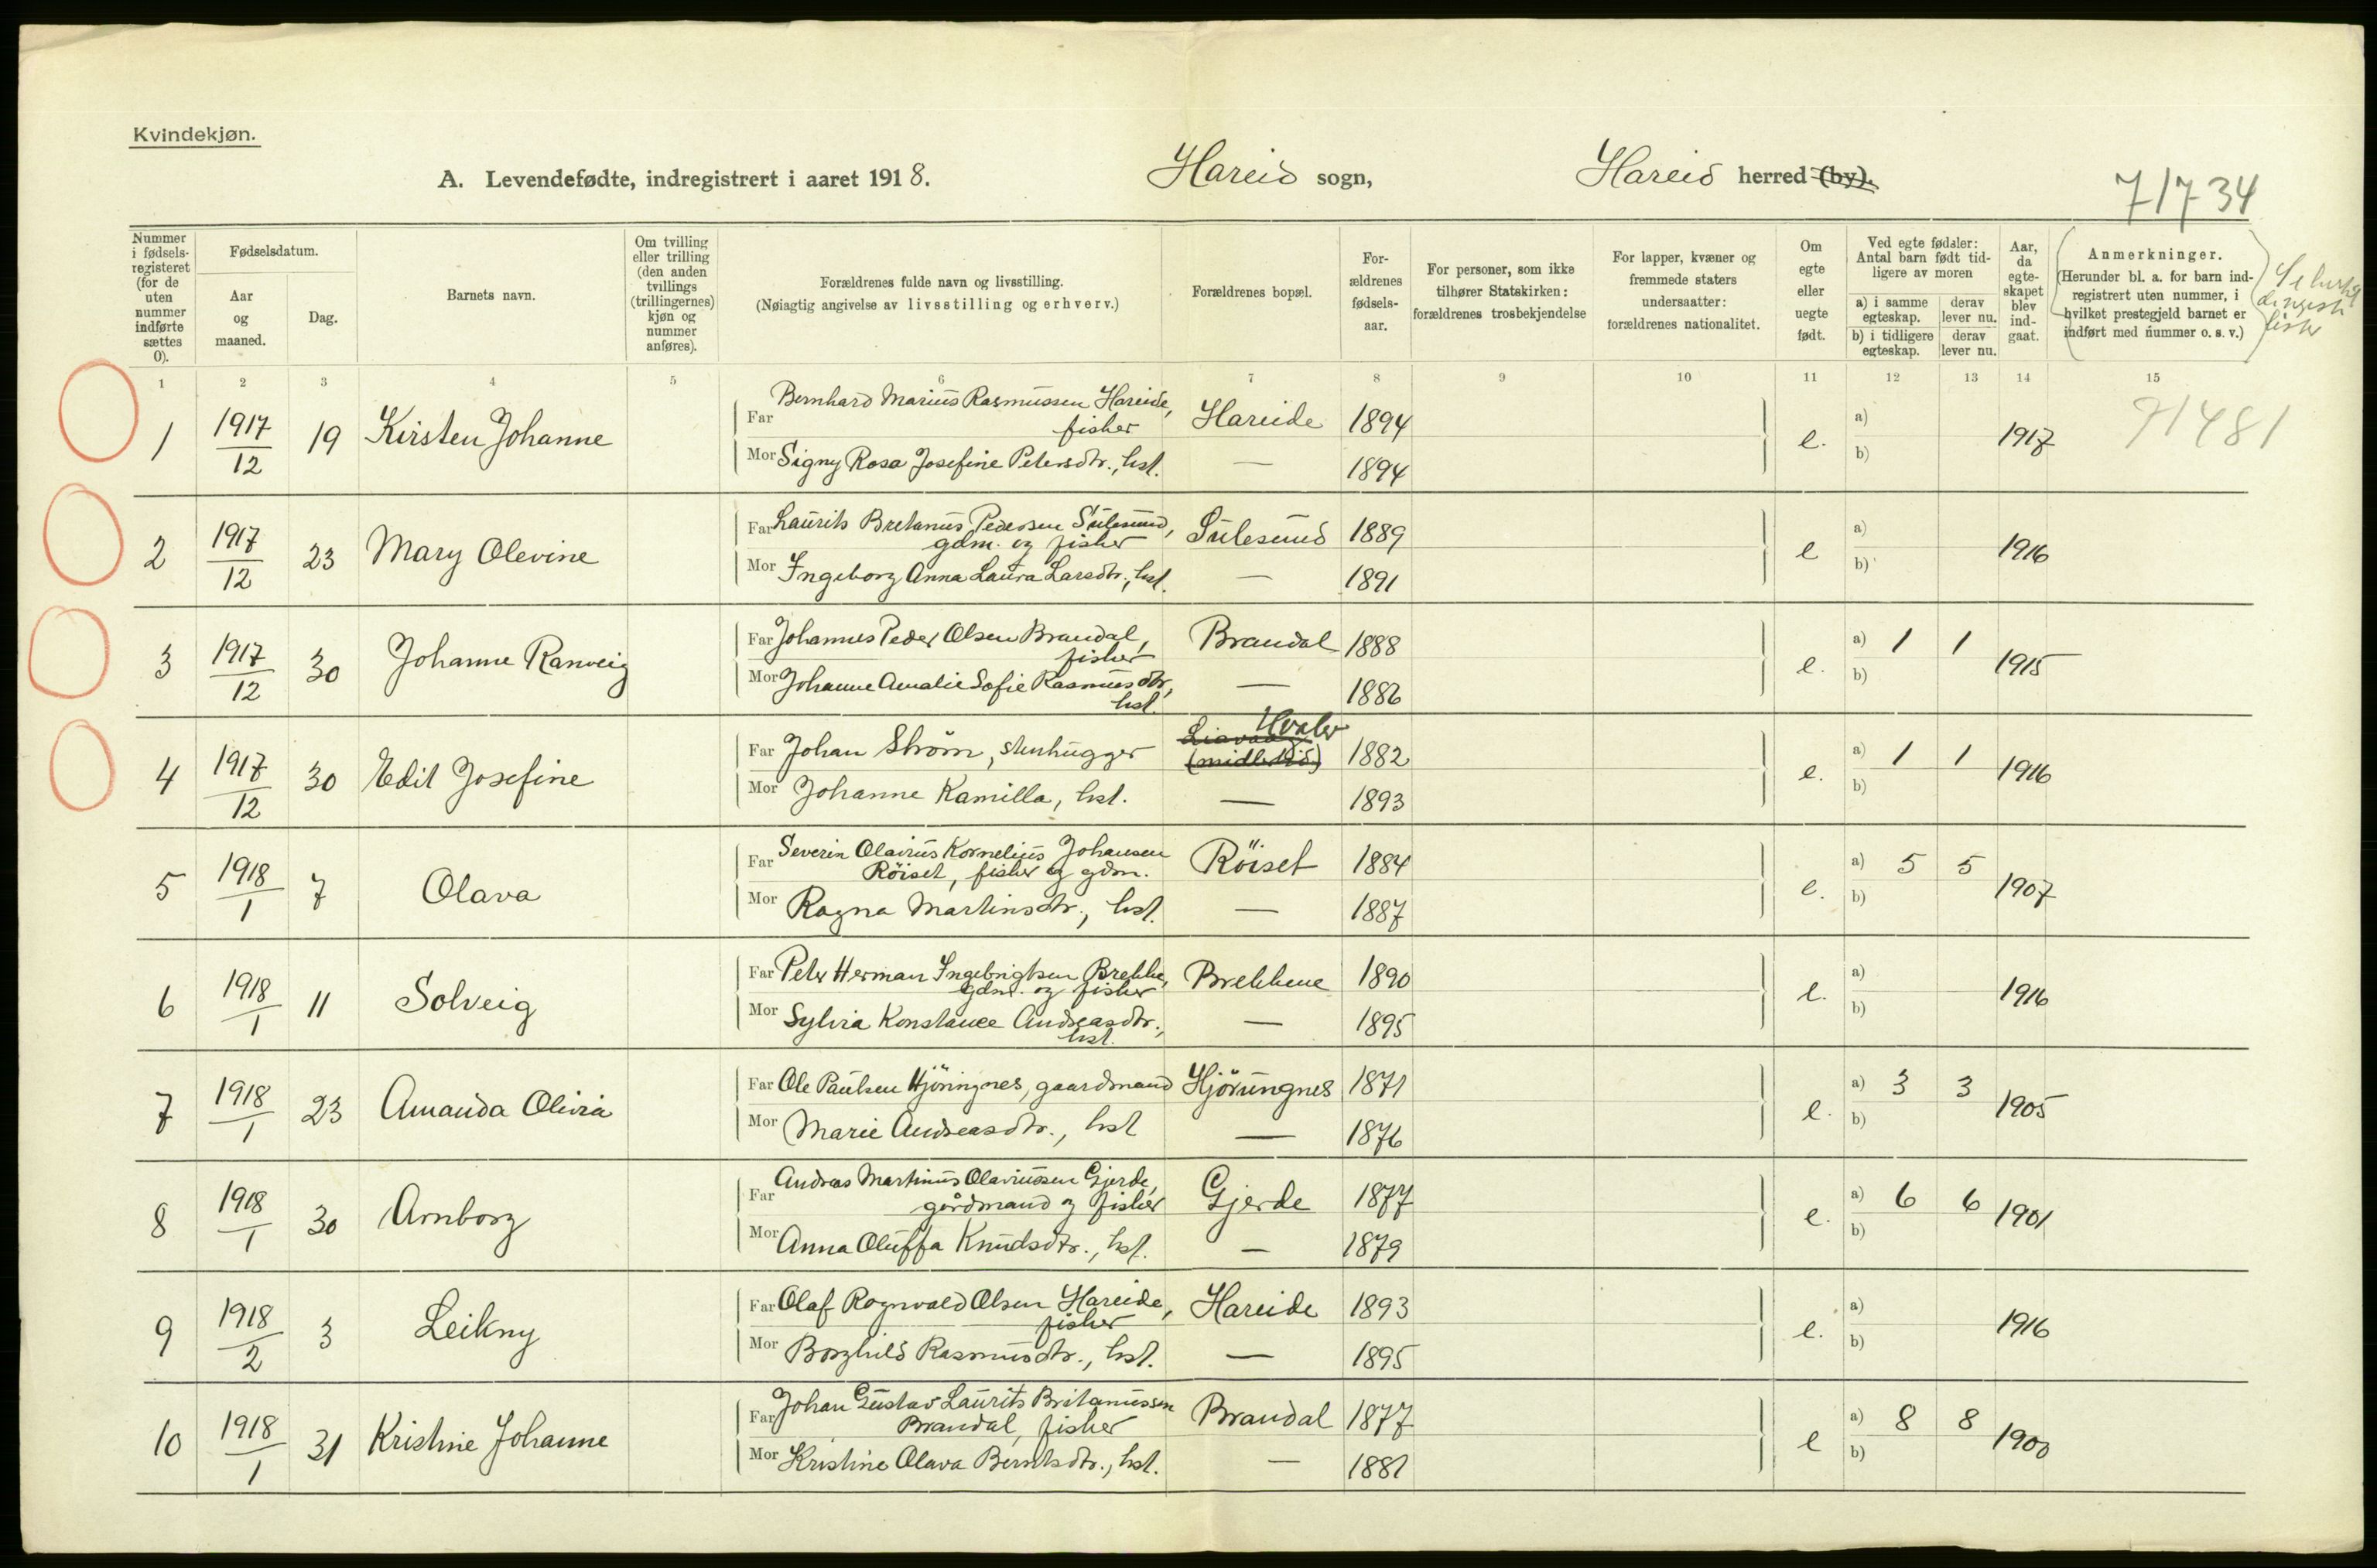 Kvindekjøn.
A. Levendefødte, indregistrert i aaret 1918. Hareid sogn, Hareid herred (by).
71734
Nummer i fødselsregisteret (for de uten nummer indførte sættes 0).
Fødselsdatum.
Aar og maaned.
Dag.
Barnets navn.
Om tvilling eller trilling (den anden tvillings (trillingernes) kjøn og nummer anføres).
Forældrenes fulde navn og livsstilling.
(Nøiagtig angivelse av livsstilling og erhverv.)
Forældrenes bopæl.
Forældrenes fødselsaar.
For personer, som ikke tilhører Statskirken: forældrenes trosbekjendelse
For lapper, kvæner og fremmede staters undersaatter: forældrenes nationalitet.
Om egte eller uegte født.
Ved egte fødsler: Antal barn født tidligere av moren
a) i samme egteskap. derav lever nu.
b) i tidligere egteskap. derav lever nu.
Aar, da egteskapet blev indgaat.
Anmerkninger.
(Herunder bl. a. for barn indregistrert uten nummer, i hvilket prestegjeld barnet er indført med nummer o. s. v.)
1 2 3 4 5 6 7 8 9 10 11 12 13 14 15
Far Bernhard Marius Rasmussen Hareide, Hareide 1894 a)
fisher
1 1917/12 19 Kirsten Johanne e. 1917 71481
Mor Signy Rosa Josefine Petersdtr., hst. — 1894 b)
Far Laurits Bretanus Pedersen Sulesund, Sulesund 1889 a)
gdm. og fisher
2 1917/12 23 Mary Olevine e 1916
Mor Ingeborg Anna Laura Larsdtr., hst. — 1891 b)
Far Johannes Peder Olsen Brandal, Brandal 1888 a) 1 1
fisher
3 1917/12 30 Johanne Ranveig e. 1915
Mor Johanne Amalie Sofie Rasmusdtr, — 1886 b)
hst.
Hvaler
Far Johan Strøm, stenhugger (midlertid) 1882 a) 1 1
4 1917/12 30 Edit Josefine e. 1916
Mor Johanne Kamilla, hst. — 1893 b)
Far Severin Olavius Kornelius Johansen Röiset 1884 a) 5 5
Röiset, fisher og gdm.
5 1918/1 7 Olava e. 1907
Mor Ragna Martinsdtr., hst. — 1887 b)
Far Peter Herman Ingebrigtsen Brekke, Brekkene 1890 a)
gdm. og fisher
6 1918/1 11 Solveig e. 1916
Mor Sylvia Konstance Andreasdtr., — 1895 b)
hst.
Far Ole Paulsen Hjöringnes, gaardmand Hjörungnes 1871 a) 3 3
7 1918/1 23 Amanda Olivia e. 1905
Mor Marie Andreasdtr., hst — 1876 b)
Far Andreas Martinus Olaviussen Gjerde, Gjerde 1877 a) 6 6
gårdmand og fisher
8 1918/1 30 Arnborg e. 1901
Mor Anna Oluffa Knudsdtr., hst. — 1879 b)
Far Olaf Rognvald Olsen Hareide, Hareide 1893 a)
fisher
9 1918/2 3 Leikny e. 1916
Mor Borghild Rasmusdtr., hst. — 1895 b)
Far Johan Gustav Laurits Britanussen Brandal 1877 a) 8 8
Brandal, fisher
10 1918/1 31 Kristine Johanne e 1900
Mor Kristine Olava Berntsdtr., hst. — 1881 b)